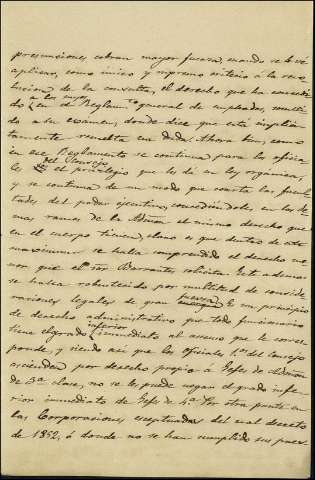 presunciones cobran mayor fuerza, cuando se le vé
aplicar, como único y supremo criterio á la reso
lucion de la consulta, el derecho que ha concedi
do á los suyos en el Reglam.to general de empleados, someti
do a su exámen, donde dice que está implíci
tamente resuelta esa duda. Ahora bien, como
en ese Reglamento se continua para los oficia
les del Consejo el privilegio que les dá su ley orgánica,
y se continua de un modo que coarta las facul
tades del poder ejecutivo, concediéndoles en los de
mas ramos de la Admon el mismo derecho que
en el cuerpo tienen, claro es que dentro de este
se halla comprendido el derecho
que el Sor Barrantes solicita. Este ademas
se halla robustecido por multitud de conside
raciones legales de gran fuerza. Es un principio
de derecho administrativo que todo funcionario
tiene el grado inferior inmediato al ascenso que le corres
ponde, y siendo asi que los oficiales 1.os del Consejo
ascienden por derecho propio á Gefes de Admon
de 3.a clase, no se les puede negar el grado infe
rior inmediato de Gefe de 4.a Por otra parte en
las Corporaciones exceptuadas del real decreto
de 1852, á donde no se han cumplido sus pres